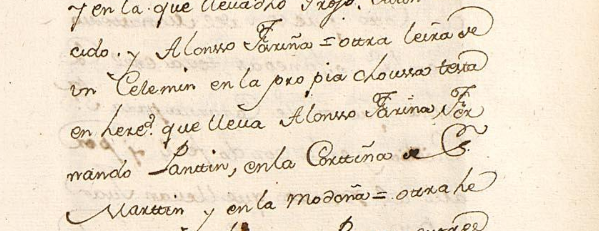 y en la que lleua dho
cido, y Alonsso Fariña = ottra leira de
vn Celemin en la propia choussa testa
en here.ª que lleua Alonsso Fariña Fer
nando Lanttin, en la Corttiña de S.
Marttin y en la Modoña = ottra he